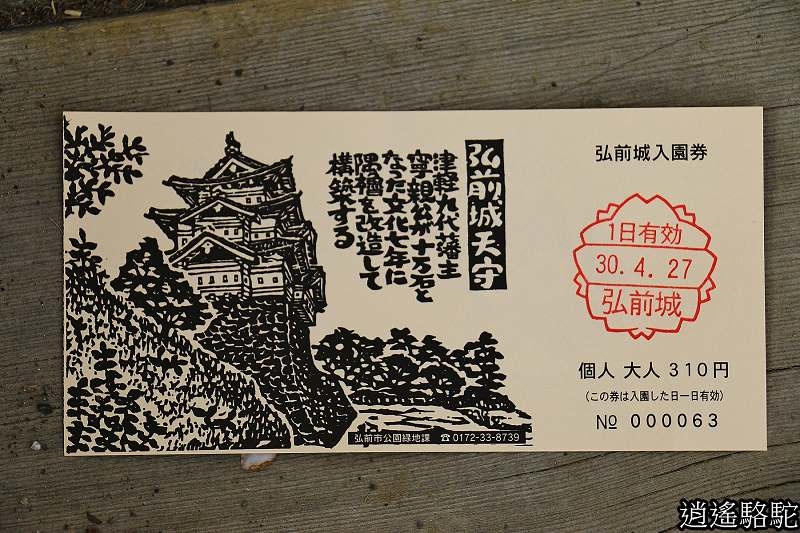 弘前城天守
津軽九代藩主
寧親公が十万石と
なった文化七年に
隅櫓を改造して
構築する
弘前市公園緑地課 ☎0172-33-8739
弘前城入園券
1日有効
30. 4. 27
弘前城
個人 大人 310円
(この券は入園した日一日有効)
№ 000063
逍遙駱駝